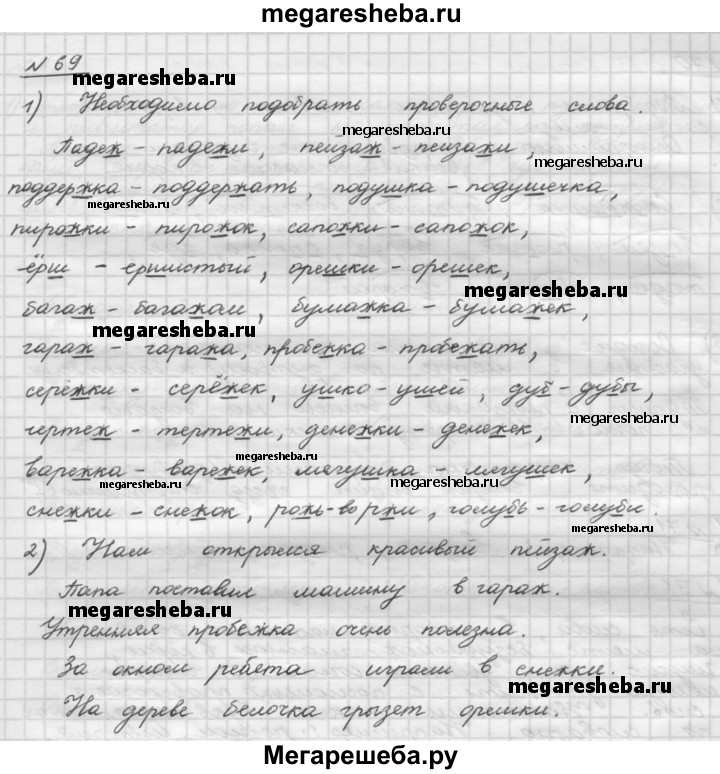 megaresheba.ru
№ 69
megaresheba.ru
1) Необходимо подобрать проверочные слова.
megaresheba.ru
Падеж - падежи, пейзаж - пейзажи,
megaresheba.ru
поддержка - поддержать, подушка - подушечка,
megaresheba.ru
пирожки - пирожок, сапожки - сапожок,
ёрш - ершистый, орешки - орешек,
megaresheba.ru
багаж - багажом, бумажка - бумажек,
megaresheba.ru
гараж - гаража, пробежка - пробежать,
серёжки - серёжек, ушко - ушей, дуб - дубы,
megaresheba.ru
чертеж - тертежи, денежки - денежек,
megaresheba.ru
варежка - варежек, лягушка - лягушек,
megaresheba.ru
megaresheba.ru
снежки - снежок, рожь - во ржи, голубь - голуби.
megaresheba.ru
2) Нам открылся красивый пейзаж.
Папа поставил машину в гараж.
megaresheba.ru
megaresheba.ru
Утренняя пробежка очень полезна.
За окном ребята играли в снежки.
megaresheba.ru
На дереве белочка грызет орешки.
Мегарешеба.ру